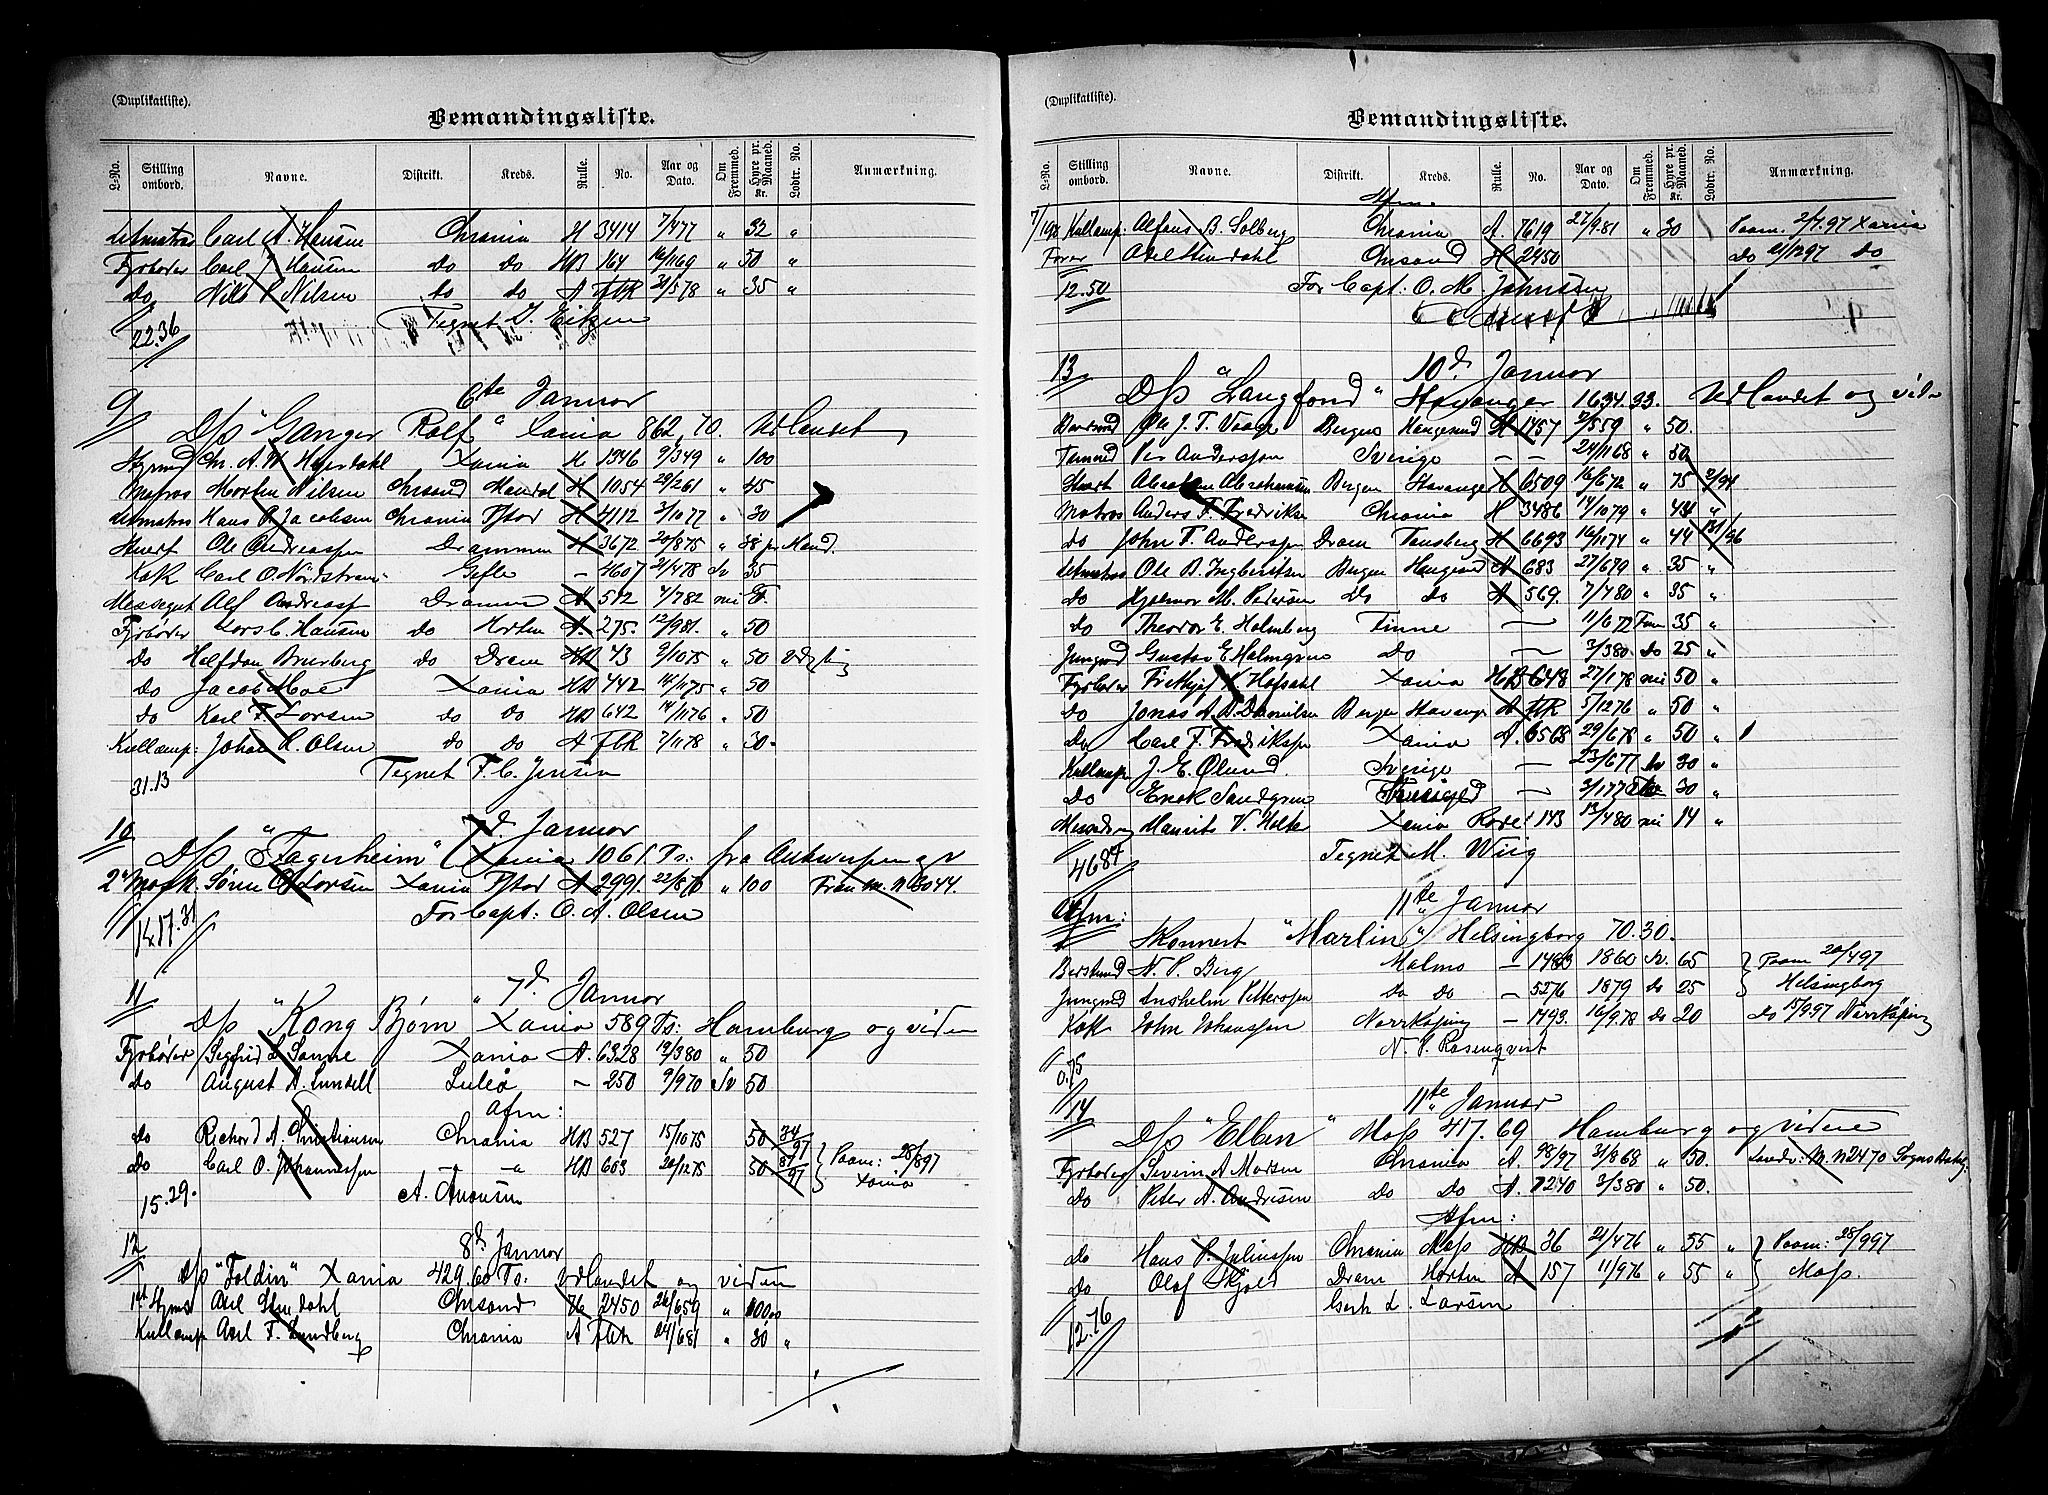 (Duplikatliste).
Bemandingsliste.
L-No. Stilling ombord. Navne. Distrikt. Kreds. Rulle. No. Aar og Dato. Om Fremmed. Hyre pr. Maaned. Kr. Lodtr. No. Anmærkning.
Letmatros Carl A. Hansen Chrania H 3414 7/477 " 32 "
Fyrbøder Carl J Hansen do do HB 164 " 50 "
Do Nils P Nilsen do do A FbR 21/578 " 35 "
22.36 Tegnet
9 6te Januar
D/s "Ganger Rolf" Xania 862,70. Udlandet
Styrmd Chr. A. H Heierdahl Xania H 1346 9/349 " 100
Matros Morten Nilsen Chrsand Mandal H 1054 29/261 " 45
Letmatros Hans R. Jacobsen Chrania Fstad H 4112 3/1077 " 30
Stuert Ole Andreassen Drammen H 3672 20/875 " 38 pr Maand.
Kok Carl O. Nordstrøm Gefle – 4607 21/478 Sv 35
Messegut Alf Andreass Dramm A 512 1/782 mi F.
Fyrbøder Lars C. Hansen do Horten A. 275. 12/981. " 50
Do Halfdan Bruerberg do Dram HB 43 9/1075 " 50
Do Jacob Moe Xania HB 442 14/1175 " 50
do Karl F. Larsen do do HB 642 14/1176 " 50
Kullemp: Johan R. Olsen do do A FbR 7/1178 " 30.
31.13 Tegnet F. C. Jensen
10 7d. Januar
D/s "Fagerheim" Xania 1061 Ts: fra Antwerpen
2n Mask. Søren C. Larsen Xania Fstad A 2991. 22/870 " 100 Fra m. No 3044.
1417.31 For Capt: O. A. Olsen
11 7d Januar
D/s "Kong Bjørn" Xania 589 Ts: Hamburg og viden
Fyrbøder Sigfrid L Sanne Xania A. 6328 19/380 " 50
do August A. Lundell Luleå – 250 9/970 Sv 50
Afm:
do Richard A. Christiansen Chrania HB 527 15/1075 50 34/97
Do Carl O. Johannessen – " HB 603 20/1275 50 87/97 Paam: 28/897 Xania
15.29. A. Aronsen
12 8d. Januar
D/s "Foldin" Xania 429.60 Ts. Udlandet og viden
1st Styrmd Axel Stendahl Chrsand H 2450 26/659 " 100,00
Kullemp Axel F. Lundberg Chrania A Fbk 24/681 " 30 "
(Duplikatliste).
Bemandingsliste.
L-No. Stilling ombord. Navne. Distrikt. Kreds. Rulle. No. Aar og Dato. Om Fremmed. Hyre pr. Maaned. Kr. Lodtr. No. Anmærkning.
Afm.
Kullemp. Alfons B. Solberg Chrania A. 7619 27/981 " 30 Paam. 2/7.97 Xania
Forer Axel Stendahl Chrsand H 2450 Do 21/1297 do
12.50 For Capt: O. M. Johnsen
13 10d. Januar
D/s "Langfond" Stavanger 1634.33. Udlandet og vid
Baadsmd Ole J. T. Vaage Bergen Haugesund H 1457 2/559 " 50.
Tømmd Per Anderssen Sverige – – 24/1168 " 50
Stuert Abraham Abrahamsen Bergen Stavanger H 6509 16/672 " 75 2/94
Matros Anders F. Fredriks Chrania H 3486 14/1079 " 44 "
do John T. Anderssen Dram Tønsberg H 6693 16/1174 " 44 131/96
Letmatros Ole B. Ingbertsen Bergen Haugesd A 683 27/679 " 35 "
do Hjalmar M. Pedersen do do A 569. 7/480 " 35 "
do Theodor E. Holmberg Finne – 11/672 Fin 35 "
Jungmd Gustav E Holmgren Do – 3/380. Do 25 "
Fyrbøder Frithjof K Hofsahl Xania HB 648 27/178 mi 50 "
do Jonas A. B. Danielsen Bergen Stavanger A FbR 5/1276 " 50 "
Do Carl F. Fredrikssen Xania A. 6568 29/678 " 50 "
Kullemp J. E. Ølund. Sverige – 23/677 Sv 30 "
Do Enok Sandgren – 3/177 30 "
Messedreng Maurits V. Holte Xania Rode: 143 13/480 mi 14 "
46.87 Tegnet M. Wiig
11te Januar
Afm:
Skonnert "Marlin" Helsingborg 70.30.
Bestmd N. P. Berg Malmø – 1483 1860 Sv. 65 Paam 20/497 Helsingborg
Jungmd Anshelm Pettersson Do Do – 5276 1879 do 25
Kok John Johansson Norrköping – 1493. 16/978 Do 20 Do 15/997 Norrköping
0.75 N. P. Rosenqvist
14 11te Januar
D/s "Ellen" Moss 417.69 Hamburg og videre
Fyrbøder Severin A Madsen Chrania A. 98/97 31/868 " 50. Landv: M. No 2470 Sogns Bat.
Do Peter A. Andresen Do Do A. 1240 3/380 " 50.
Afm:
do Hans P. Juliussen Chrania Moss HB 36 21/476 " 55 " Paam: 28/997
Do Olaf Skjold Dram Horten A 157 11/976 " 55 " Moss.
12.76 L. Larsen